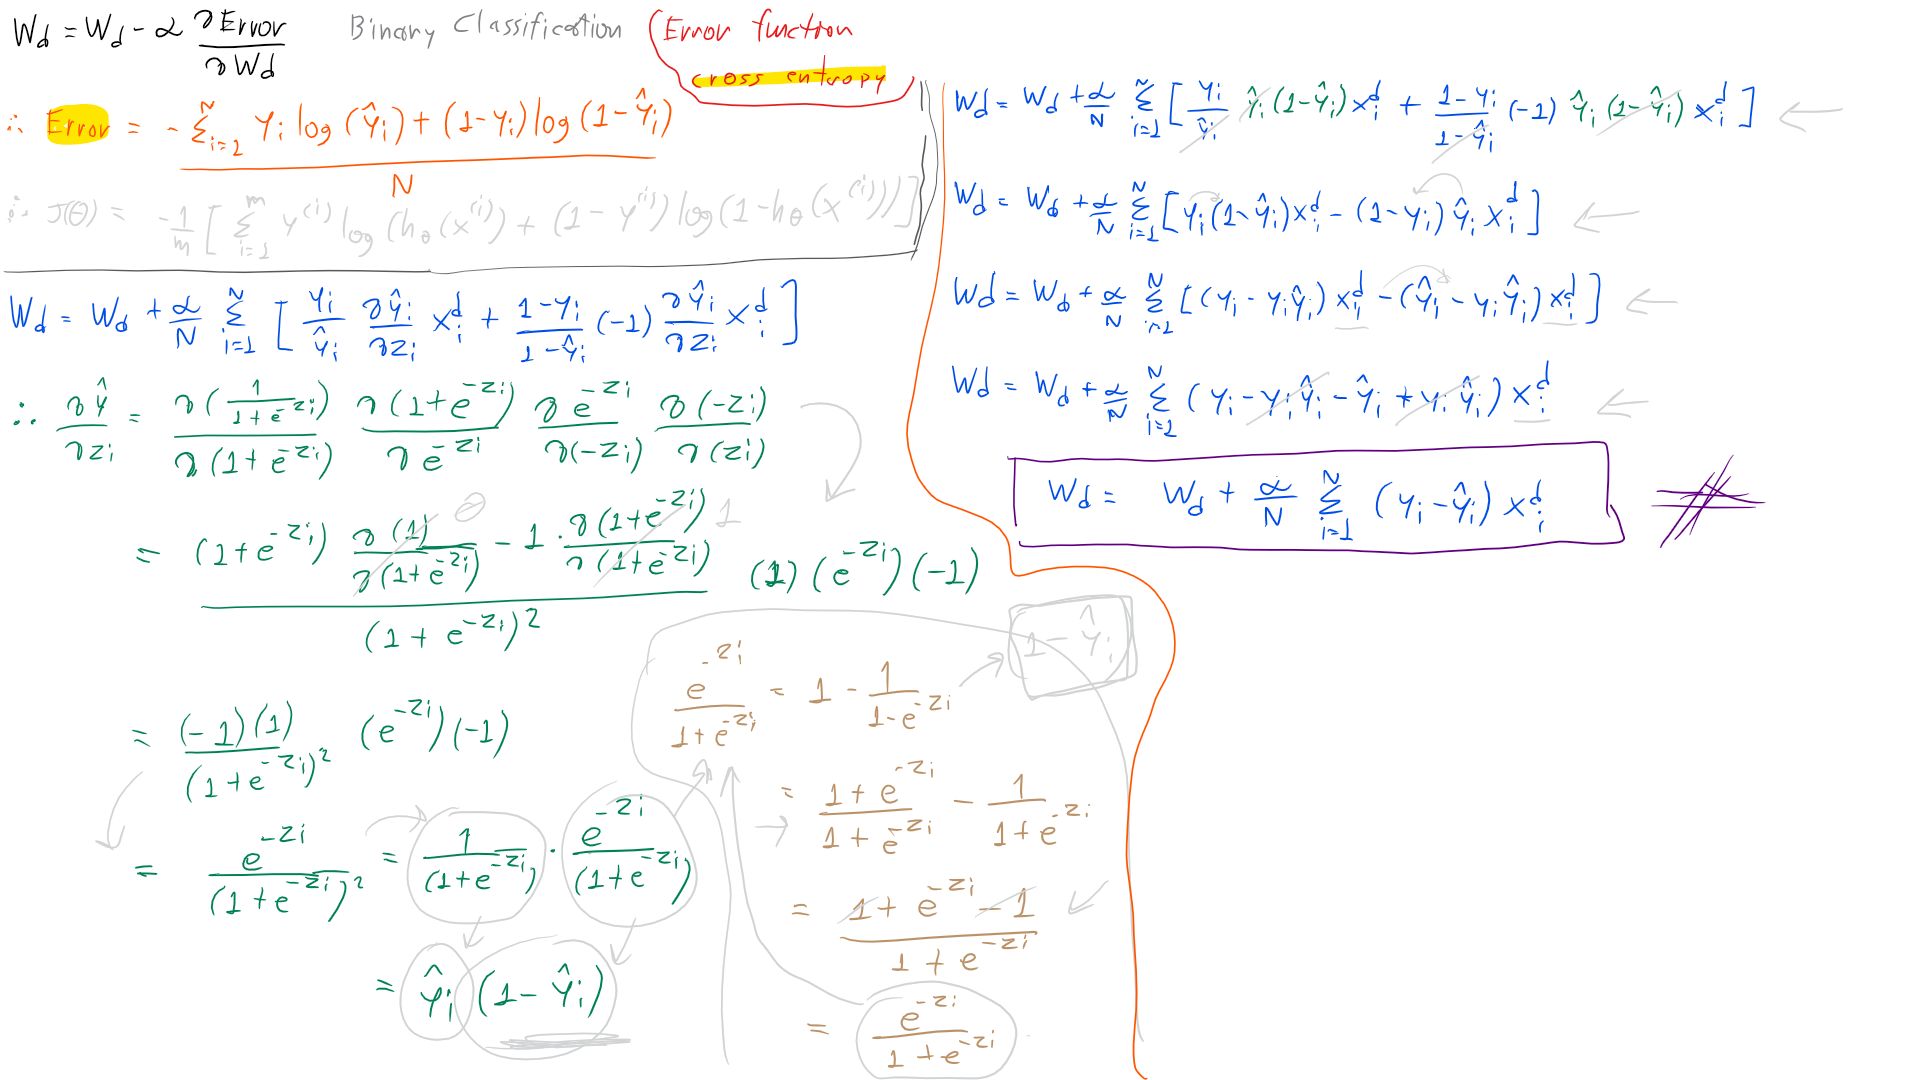 W_d = W_d - α ∂Error / ∂W_d
Binary Classification
Error function
cross entropy
∴ Error = - Σ_{i=1}^{N} y_i log(ŷ_i) + (1-y_i) log(1-ŷ_i) / N
∴ J(θ) = -1/m [ Σ_{i=1}^{m} y^{(i)} log(h_θ(x^{(i)})) + (1 - y^{(i)}) log(1-h_θ(x^{(i)})) ]
W_d = W_d + α/N Σ_{i=1}^{N} [ y_i/ŷ_i ∂ŷ_i/∂z_i x_i^d + (1-y_i)/(1-ŷ_i) (-1) ∂ŷ_i/∂z_i x_i^d ]
∴ ∂ŷ/∂z_i = ∂(1/(1+e^{-z_i})) / ∂(1+e^{-z_i}) ∂(1+e^{-z_i}) / ∂e^{-z_i} ∂e^{-z_i} / ∂(-z_i) ∂(-z_i) / ∂(z_i)
= (1+e^{-z_i}) ∂(1)/∂(1+e^{-z_i}) 0 - 1 · ∂(1+e^{-z_i})/∂(1+e^{-z_i}) 1 / (1+e^{-z_i})^2 (1)(e^{-z_i})(-1)
= (-1)(1) / (1+e^{-z_i})^2 (e^{-z_i})(-1)
= e^{-z_i} / (1+e^{-z_i})^2 = 1/(1+e^{-z_i}) · e^{-z_i}/(1+e^{-z_i})
= ŷ_i (1-ŷ_i)
e^{-z_i} / 1+e^{-z_i} = 1 - 1/1-e^{-z_i}
1-ŷ_i
= 1+e^{-z_i} / 1+e^{-z_i} - 1 / 1+e^{-z_i}
= 1+e^{-z_i} - 1 / 1+e^{-z_i}
= e^{-z_i} / 1+e^{-z_i}
W_d = W_d + α/N Σ_{i=1}^{N} [ y_i/ŷ_i ŷ_i(1-ŷ_i)x_i^d + 1-y_i/1-ŷ_i (-1) ŷ_i(1-ŷ_i) x_i^d ]
W_d = W_d + α/N Σ_{i=1}^{N} [ y_i(1-ŷ_i)x_i^d - (1-y_i) ŷ_i x_i^d ]
W_d = W_d + α/N Σ_{i=1}^{N} [ (y_i - y_iŷ_i) x_i^d - (ŷ_i - y_iŷ_i) x_i^d ]
W_d = W_d + α/N Σ_{i=1}^{N} (y_i - y_iŷ_i - ŷ_i + y_iŷ_i) x_i^d
W_d = W_d + α/N Σ_{i=1}^{N} (y_i - ŷ_i) x_i^d